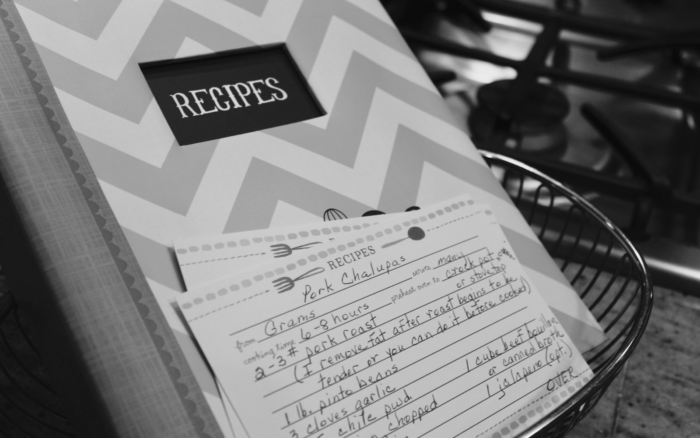 RECIPES
RECIPES
Pork Chalupas
from Grams serves many
cooking time 6-8 hours preheat oven to crock pot
or stovetop
2-3# pork roast
(I remove fat after roast begins to be
tender or you can do it before cooked)
1 lb. pinto beans
3 cloves garlic 1 cube beef bouillon
chile pwd or canned broth
chopped 1 jalapeno (opt.)
OVER